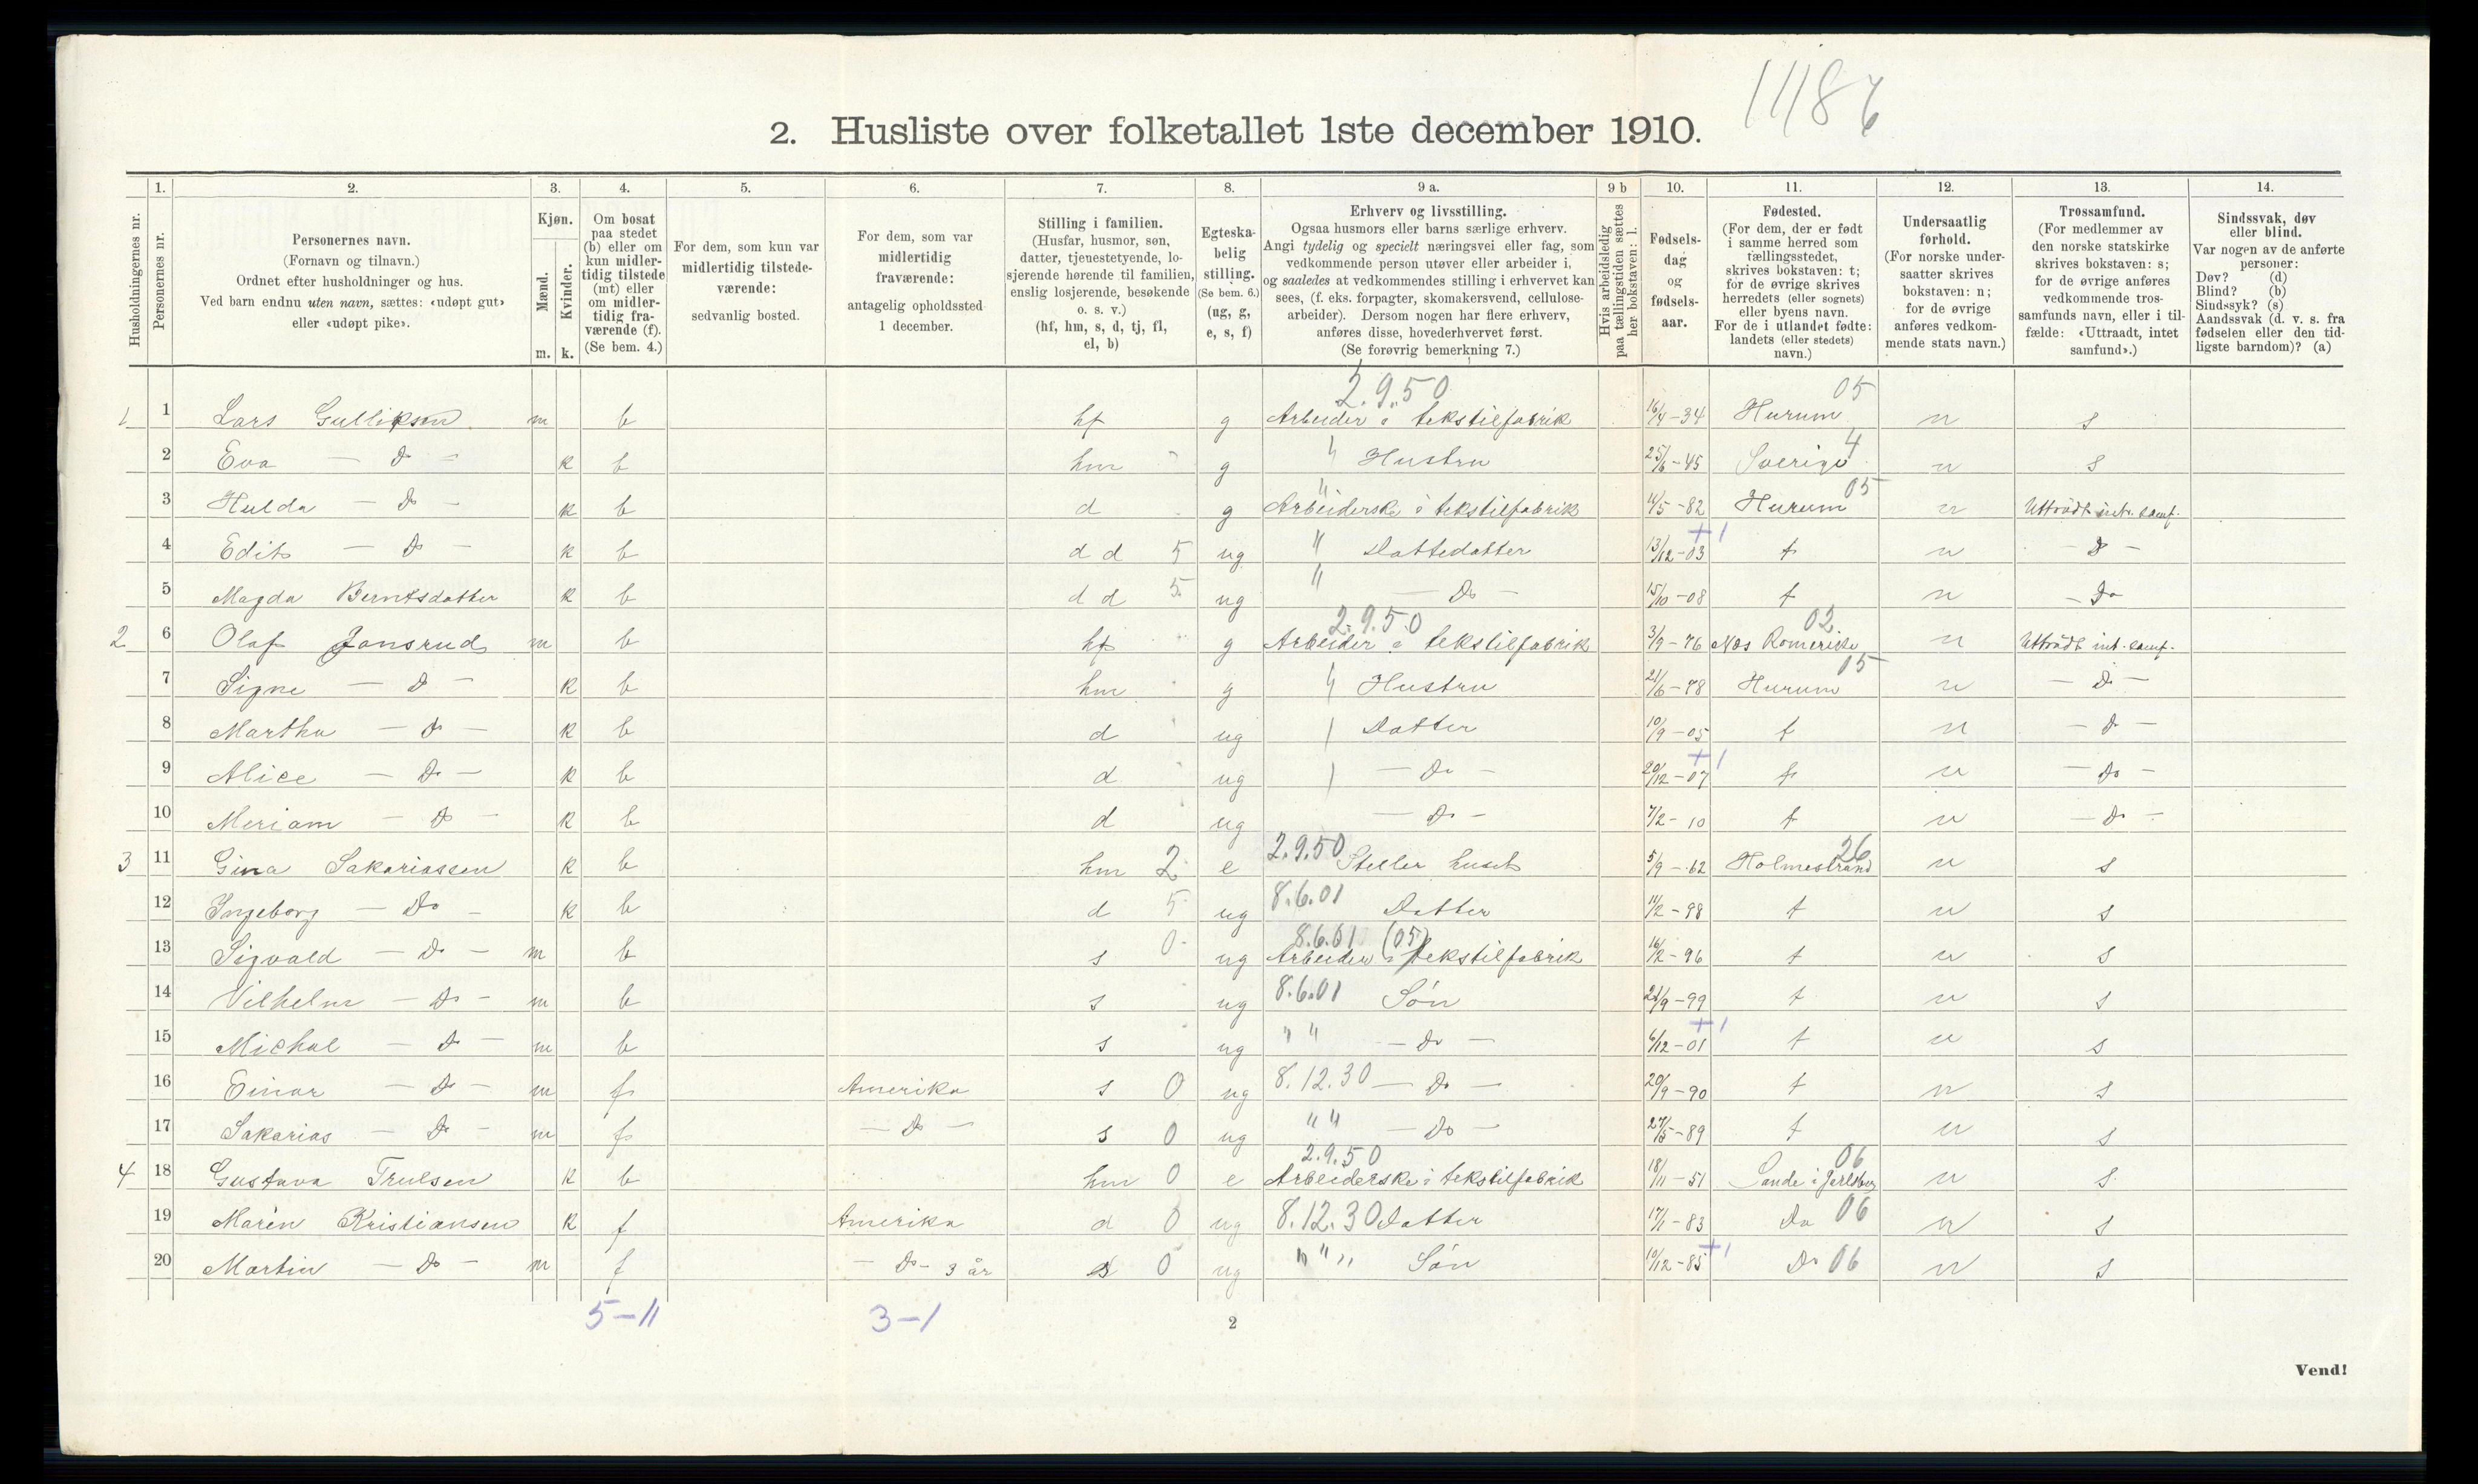 1186
2. Husliste over folketallet 1ste december 1910.
Husholdningernes nr.
1. Personernes nr.
2. Personernes navn. (Fornavn og tilnavn.) Ordnet efter husholdninger og hus. Ved barn endnu uten navn, sættes: «udøpt gut» eller «udøpt pike».
3. Kjøn. Mænd. m. Kvinder. k.
4. Om bosat paa stedet (b) eller om kun midlertidig tilstede (mt) eller om midlertidig fraværende (f). (Se bem. 4.)
5. For dem, som kun var midlertidig tilstedeværende: sedvanlig bosted.
6. For dem, som var midlertidig fraværende: antagelig opholdssted 1 december.
7. Stilling i familien. (Husfar, husmor, søn, datter, tjenestetyende, losjerende hørende til familien, enslig losjerende, besøkende o. s. v.) (hf, hm, s, d, tj, fl, el, b)
8. Egteskabelig stilling. (Se bem. 6.) (ug, g, e, s, f)
9 a. Erhverv og livsstilling. Ogsaa husmors eller barns særlige erhverv. Angi tydelig og specielt næringsvei eller fag, som vedkommende person utøver eller arbeider i, og saaledes at vedkommendes stilling i erhvervet kan sees, (f. eks. forpagter, skomakersvend, cellulosearbeider). Dersom nogen har flere erhverv, anføres disse, hovederhvervet først. (Se forøvrig bemerkning 7.)
9 b Hvis arbeidsledig paa tællingstiden sættes her bokstaven: l.
10. Fødselsdag og fødselsaar.
11. Fødested. (For dem, der er født i samme herred som tællingsstedet, skrives bokstaven: t; for de øvrige skrives herredets (eller sognets) eller byens navn. For de i utlandet fødte: landets (eller stedets) navn.)
12. Undersaatlig forhold. (For norske undersaatter skrives bokstaven: n; for de øvrige anføres vedkommende stats navn.)
13. Trossamfund. (For medlemmer av den norske statskirke skrives bokstaven: s; for de øvrige anføres vedkommende trossamfunds navn, eller i tilfælde: «Uttraadt, intet samfund».)
14. Sindssvak, døv eller blind. Var nogen av de anførte personer: Døv? (d) Blind? (b) Sindssyk? (s) Aandssvak (d. v. s. fra fødselen eller den tidligste barndom)? (a)
1 1 Lars Gulliksen m b hf g 2.9.50 Arbeider i tekstilfabrik 16/4-34 Hurum 05 n s
2 Eva - Do - k b hm g " Hustru 25/6-45 Sverige 4 n s
3 Hulda - Do - k b d g " Arbeiderske i tekstilfabrik 11/5-82 Hurum 05 n Uttrådt int. samf.
4 Edit - Do - k b d d 5 ug " Dattedatter 13/12-03 +1 t n - Do -
5 Magda Berntsdatter k b d d 5 ug " - Do - 15/10-08 t n - Do
2 6 Olaf Jonsrud m b hf g 2.9.50 Arbeider i tekstilfabrik 3/9-76 Nes Romerike 02 n Uttrådt int. samf.
7 Signe - Do - k b hm g " Hustru 21/6-78 Hurum 05 n - Do -
8 Martha - Do - k b d ug Datter 10/9-05 t n - Do -
9 Alice - Do - k b d ug - Do - 20/12-07 +1 t n - Do -
10 Meriam - Do - k b d ug - Do - 7/2-10 t n - Do -
3 11 Gina Sakariassen k b hm 2 e 2.9.50 Steller huset 5/9-62 Holmestrand 26 n s
12 Ingeborg - Do - k b d 5 ug 8.6.01 Datter 11/2-98 t n s
13 Sigvald - Do - m b s 0 ug 8.6.01 (05) Arbeider i tekstilfabrik 16/2-96 t n s
14 Vilhelm - Do - m b s ug 8.6.01 Søn 21/9-99 t n s
15 Michal - Do - m b s ug " " - Do - 6/12-01 +1 t n s
16 Einar - Do - m f Amerika s 0 ug 8.12.30 - Do - 20/9-90 t n s
17 Sakarias - Do - m f - Do - s 0 ug " " - Do - 27/5-89 t n s
4 18 Gustava Trulsen k b hm 0 e 2.9.50 Arbeiderske i tekstilfabrik 18/11-51 Sande i Jarlsberg 06 n s
19 Marèn Kristiansen k f Amerika d 0 ug 8.12.30 Datter 17/1-83 Do 06 n s
20 Martin - Do - m f - Do - 3 år s 0 ug " " " Søn 10/12-85 +1 Do 06 n s
5-11 3-1
2
Vend!